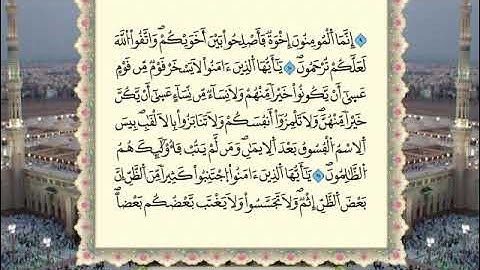 إِنَّمَا اَ۬لْمُومِنُونَ إِخْوَةٞ فَأَصْلِحُواْ بَيْنَ أَخَوَيْكُمْۖ وَاتَّقُواْ اُ۬للَّهَ
لَعَلَّكُمْ تُرْحَمُونَۖ يَٰٓأَيُّهَا اَ۬لذِينَ ءَامَنُواْ لَا يَسْخَرْ قَوْمٞ مِّن قَوْمٍ
عَسَىٰٓ أَنْ يَّكُونُواْ خَيْراٗ مِّنْهُمْ وَلَا نِسَآءٞ مِّن نِّسَآءٍ عَسَىٰٓ أَنْ يَّكُنَّ
خَيْراٗ مِّنْهُنَّۖ وَلَا تَلْمِزُوٓاْ أَنفُسَكُمْ وَلَا تَنَابَزُواْ بِالَالْقَٰبِۖ بِيسَ
اَ۬لِاسْمُ اُ۬لْفُسُوقُ بَعْدَ اَ۬لِايمَٰنِۖ وَمَن لَّمْ يَتُبْ فَأُوْلَٰٓئِكَ هُمُ
اُ۬لظَّٰلِمُونَۖ يَٰٓأَيُّهَا اَ۬لذِينَ ءَامَنُواْ اُ۪جْتَنِبُواْ كَثِيراٗ مِّنَ اَ۬لظَّنِّ إِنَّ
بَعْضَ اَ۬لظَّنِّ إِثْمٞۖ وَلَا تَجَسَّسُواْ وَلَا يَغْتَب بَّعْضُكُم بَعْضاًۖ